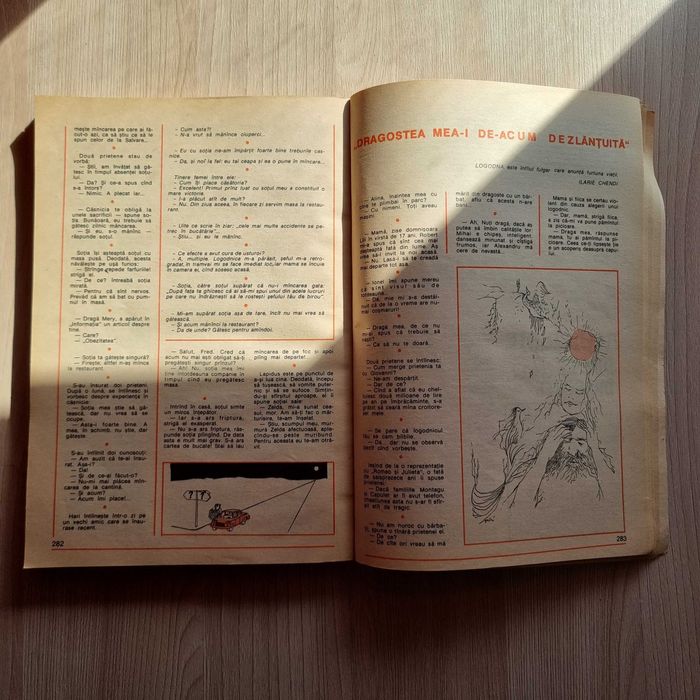 mește mîncarea pe care ai fă-
cut-o azi, ca să știu ce să le
spun celor de la Salvare...
Două prietene stau de
vorbă:
— Știi, am învățat să gătesc
în timpul absenței soțu-
lui.
— Da? Și ce-a spus cînd
s-a întors?
— Nimic. A plecat iar...
Căsnicia te obligă la
unele sacrificii — spune so-
tia. Bunăoară, eu trebuie să
gătesc zilnic mîncarea.
— Și eu, s-o mănînc. —
răspunde soțul.
Soția își așteaptă soțul cu
masa pusă. Deodată, acesta
năvălește pe ușă furios.
— Strînge repede farfuriile!
strigă el.
— De ce? întreabă soția
mirată.
— Pentru că sînt nervos.
Prevăd că am să bat cu pum-
nul în masă.
— Dragă Mery, a apărut în
„Informația" un articol despre
tine.
— Care?
— „Obezitatea"
— Soția ta gătește singură?
— Firește; altfel n-aș mînca
la restaurant.
S-au însurat doi prieteni.
După o lună, se întîlnesc și
vorbesc despre experiența în
căsnicie:
— Soția mea știe să gă-
tească, dar nu vrea să se
ocupe.
— Asta-i foarte bine. A
mea, în schimb, nu știe, dar
gătește.
S-au întîlnit doi cunoscuți:
— Am auzit că te-ai însu-
rat. Așa-i?
— Da!
— Și de ce-ai făcut-o?
— Nu-mi mai plăcea mîn-
carea de la cantină.
— Și acum?
— Acum îmi place!...
Hari întîlnește într-o zi pe
un vechi amic care se însu-
rase recent.
282
— Cum asta?!
— N-a vrut să mănînce ciuperci...
— Eu cu soția ne-am împărțit foarte bine treburile cas-
nice.
— Da, și noi la fel: eu tai ceapa și ea o pune în mîncare...
Tinere femei între ele:
— Cum îți place căsătoria?
— Excelent! Primul prînz luat cu soțul meu a constituit o
mare victorie.
— I-a plăcut atît de mult?
— Nu. Din ziua aceea, în fiecare zi servim masa la restau-
rant.
— Uite ce scrie în ziar: „cele mai multe accidente se pe-
trec în bucătărie"...
— Știu... și eu le mănînc.
— Ce efecte a avut cura de usturoi?
— A, multiple. Logodnica m-a părăsit, șeful m-a retro-
gradat, în tramvai mi se face imediat loc, iar mama se încuie
în camera ei, cînd sosesc acasă.
— Soția, către soțul supărat că nu-i mîncarea gata:
„După față ghicesc că ai să-mi spui unul din acele lucruri
pe care nu îndrăznești să le rostești șefului tău de birou".
— Mi-am supărat soția așa de tare, încît nu mai vrea să
gătească.
— Și acum mănînci la restaurant?
— Da de unde? Gătesc pentru amîndoi.
— Salut, Fred. Cred că
acum nu mai ești obligat să-ți
pregătești singur prînzul?
— Ah! Nu, soția mea îmi
ține întotdeauna companie în
timpul cînd eu pregătesc
masa.
Intrînd în casă, soțul simte
un miros înțepător.
— Iar s-a ars friptura,
strigă el exasperat.
— Nu s-a ars friptura, răs-
punde soția plîngînd. De data
asta e mult mai grav. S-a ars
cartea de bucate! Stai să iau
mîncarea de pe foc și apoi
plîng mai departe!...
Lapidus este pe punctul de
a-și lua cina. Deodată, începe
să tușească, să vomite puter-
nic și să se sufoce. Simțin-
du-și sfîrșitul aproape, el îi
spune soției sale:
— Zelda, mi-a sunat cea-
sul, mor. Am să-ți fac o măr-
turisire, te-am înșelat.
— Știu, scumpul meu, mur-
mură Zelda afectuoasă, aple-
cîndu-se peste muribund.
Pentru aceasta eu te-am otră-
vit.
? ?
„DRAGOSTEA MEA-I DE-ACUM DEZLĂNȚUITĂ"
LOGODNA este întîiul fulger care anunță furtuna vieții.
(ILARIE CHENDI)
— Alina, înaintea mea cu
cine te plimbai în parc?
— Cu nimeni. Toți aveau
mașini.
— Mamă, pise domnișoara
Lili în vîrstă de 17 ani, Robert
mi-a spus că sînt cea mai
deșteaptă fată din lume. Aș
vrea să-l invit la noi acasă.
— Nu. Lasă-l să te creadă
mai departe tot așa.
— Ionel îmi spune mereu
că sînt visul său de
totdeauna...
— Da, mie mi s-a destăi-
nuit că de la o vreme are nu-
mai coșmaruri!
— Dragă mea, de ce nu
mi-ai spus că trebuie să
naști?
— Ca să nu te doară...
Două prietene se întîlnesc:
— Cum merge prietenia ta
cu Giovanni?
— Ne-am despărțit.
— Dar de ce?
— Cînd a aflat că eu chel-
tuiesc două milioane de lire
pe an pe îmbrăcăminte, s-a
grăbit să ceară mîna croitore-
sei mele.
— Se pare că logodnicul
tău se cam bîlbîie.
— Da... dar nu se observă
decît cînd vorbește.
Ieșind de la o reprezentație
cu „Romeo și Julieta", o fată
de șaisprezece ani îi spune
prietenei:
— Dacă familiile Montagu
și Capulet ar fi avut telefon,
chestiunea asta nu s-ar fi sfîr-
șit atît de tragic.
— Nu am noroc cu bărba-
ții, spune o tînără prietenei ei.
— De ce?
— De cîte ori vreau să mă
mărit din dragoste cu un băr-
bat, aflu că acesta n-are
bani.
— Ah, Nuți dragă, dacă aș
putea să îmbin calitățile lor
Mihai e chipeș, inteligent
dansează minunat și cîștigă
frumos, iar Alexandru mă
dorește...
Mama și fiica se ceartau vio-
lent din cauza alegerii unui
logodnic.
— Dar, mamă, strigă fiica,
el are pămîntul la picioare.
— Draga mea, răspunse
mama, tu ai pămîntul la pi-
cioare. Ceea ce-ți lipsește ție
e un acoperiș deasupra capu-
lui.
283